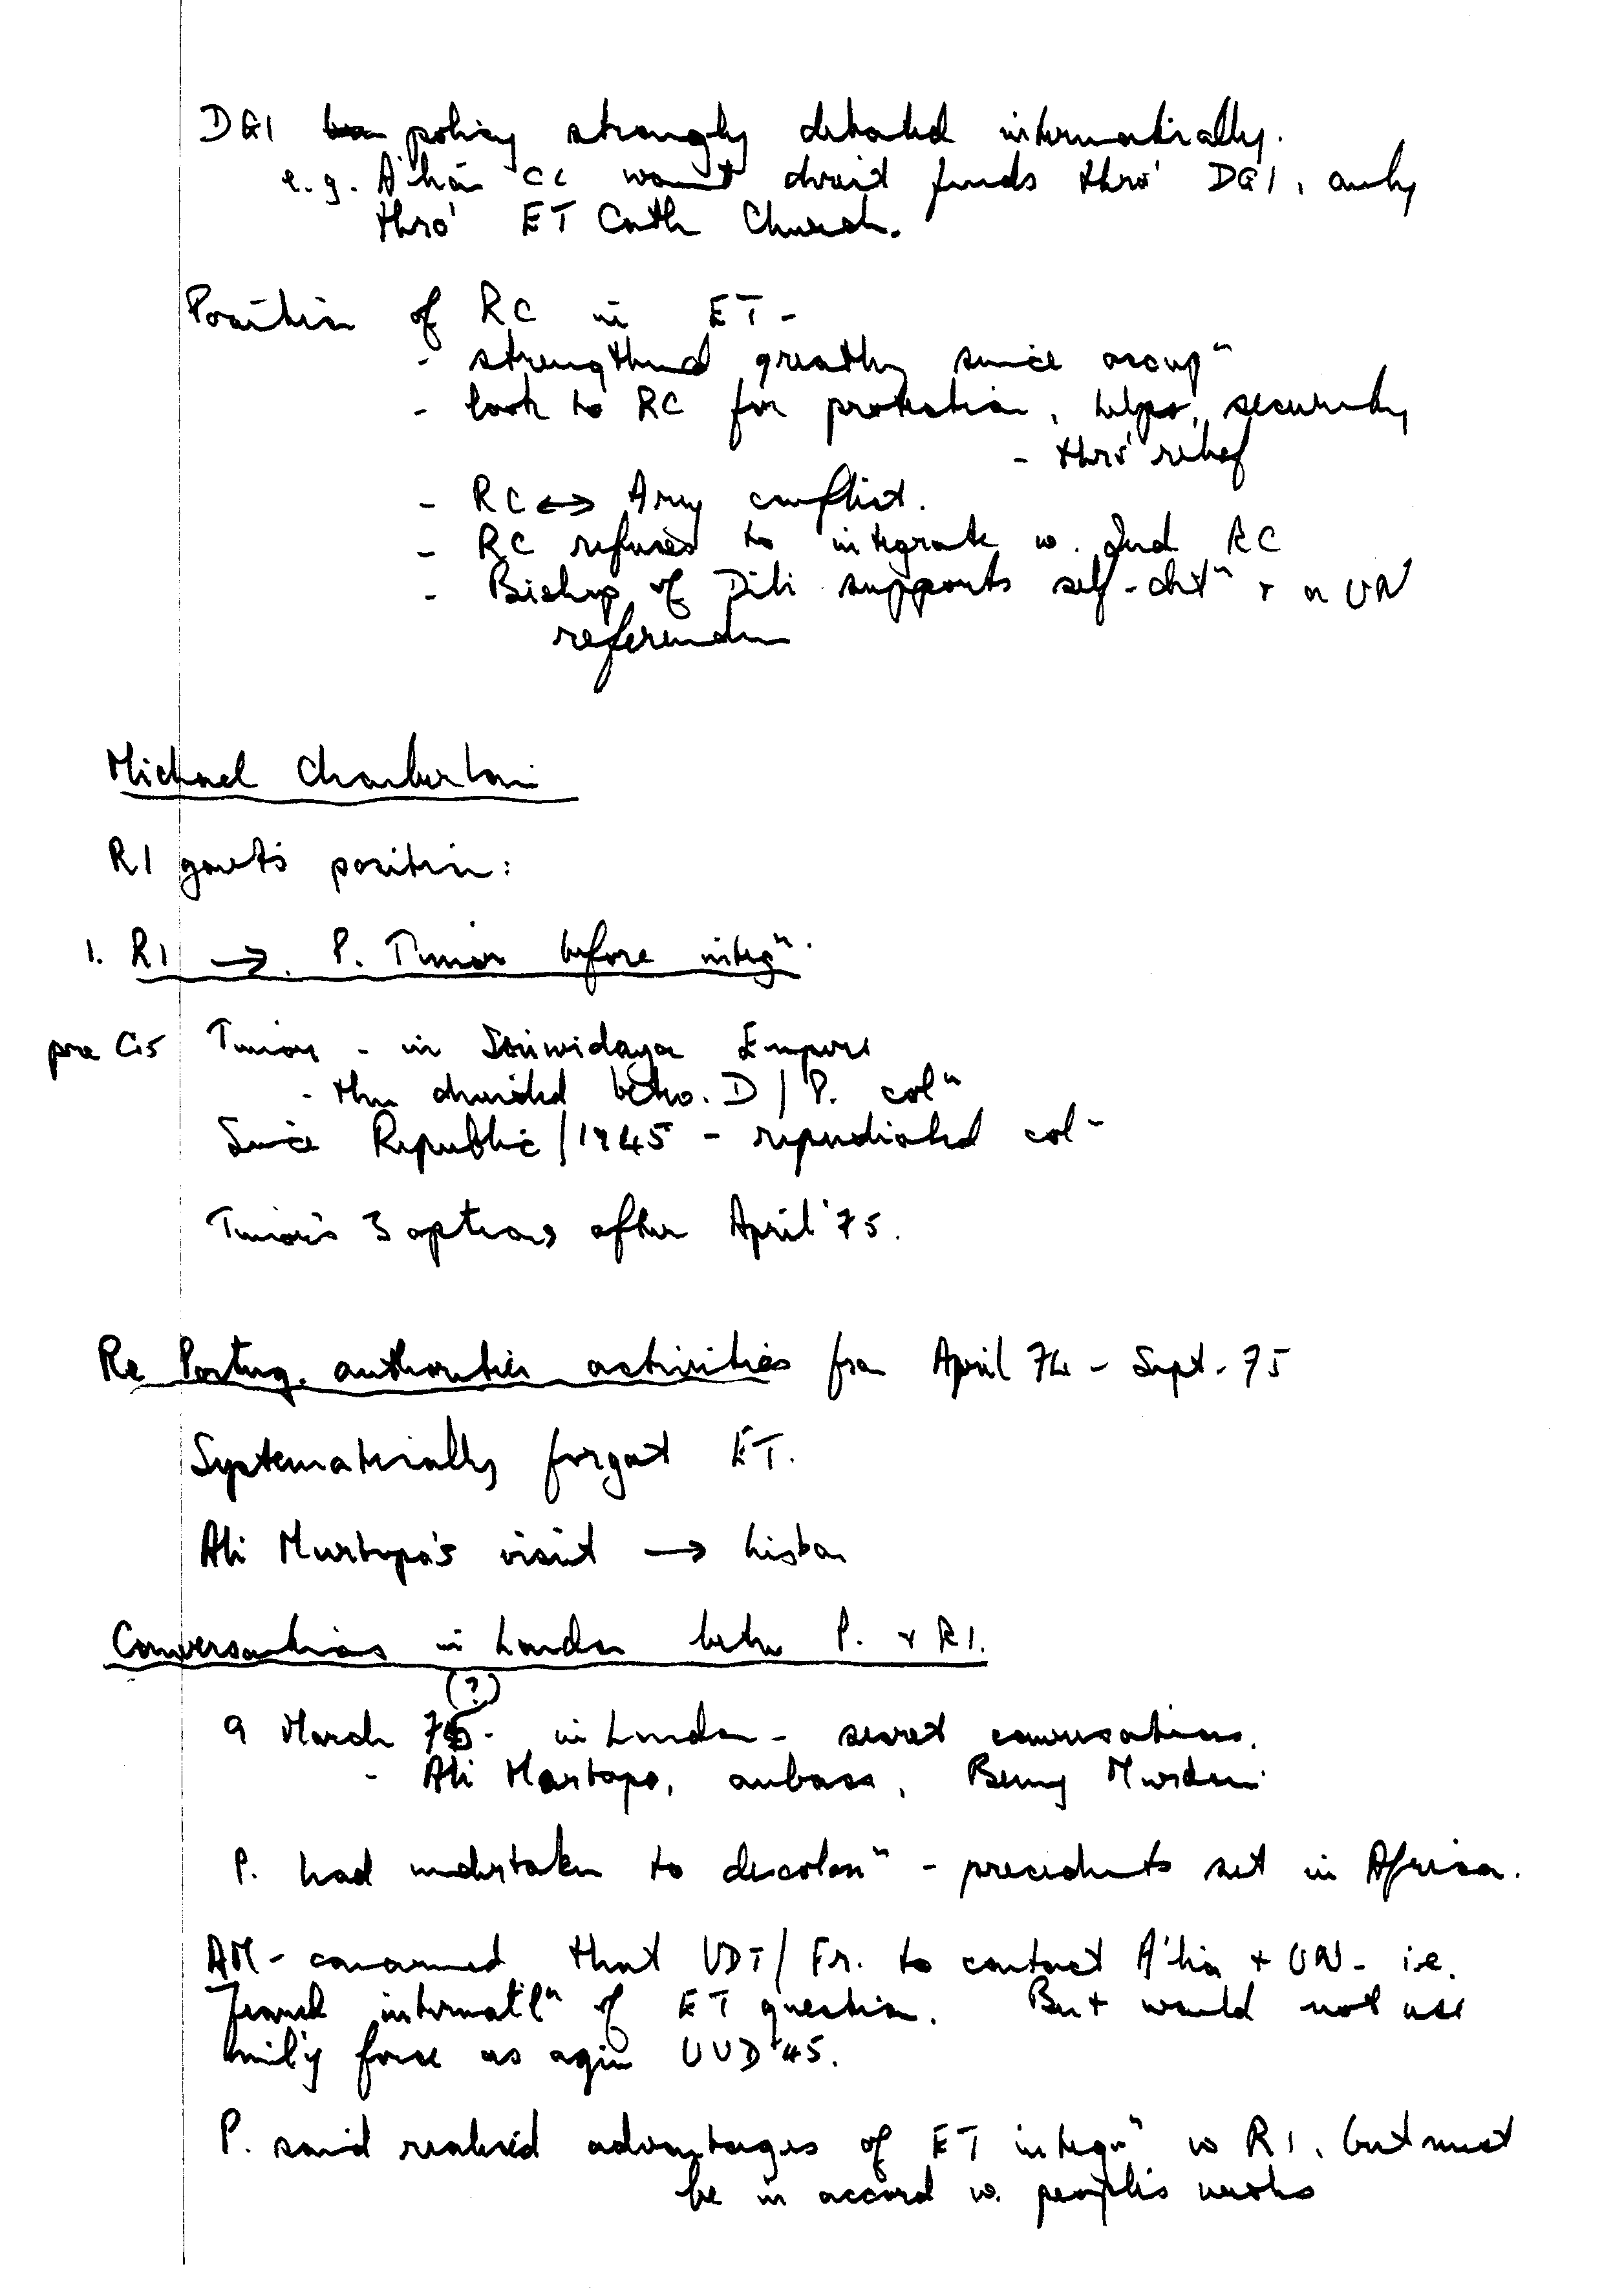 DGI policy strongly debated internationally.
e.g. A'lian CC won't divert funds thro' DGI, only
thro' ET Cath Church.
Position of RC in ET -
- strengthened greatly since occupn
- look to RC for protection, helps, security
- thro' relief
- RC ↔ Army conflict.
- RC refuses to integrate w. Ind RC
- Bishop of Dili supports self-detn + a UN
referendum
Michael Chamberlain
RI govt's position:
1. RI → P. Timor before integn.
pre C15 Timor - in Sriwidaya Empire
- then divided betw. D / P. coln
Since Republic / 1945 - repudiated coln
Timor's 3 options after April '75.
Re Portug. authorities activities from April 74 - Sept. 75
Systematically forgot ET.
Ali Murtopo's visit → Lisbon
Conversations in London betw P. + RI.
(?)
9 March 75 - in London - secret conversations.
- Ali Martopo, ambass, Benny Murdani
P. had undertaken to decolonn - precedents set in Africa.
AM - concerned that UDT / Fr. to contact A'lia + UN - i.e.
feared internatln of ET question. But would not use
mil'y force as agin UUD '45.
P. said realised advantages of ET integn w RI, but must
be in accord w. people's wishes